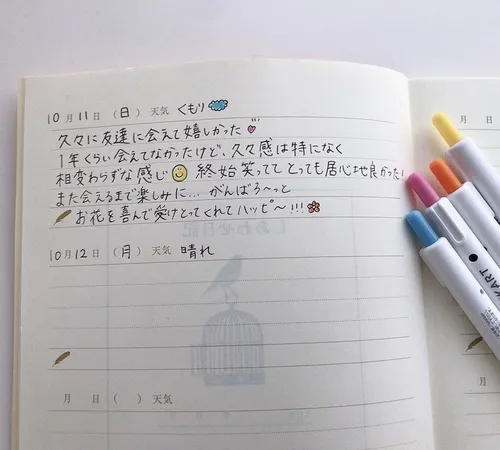 10月11日（日）天気 くもり
久々に友達に会えて嬉しかった
1年くらい会えてなかったけど、久々感は特になく
相変わらずな感じ 終始笑ってて とっても居心地良かった!
また会えるまで楽しみに... がんばろ〜っと
お花を喜んで受けとってくれてハッピ〜!!!
10月12日（月）天気 晴れ
月 日（ ）天気
月
月
月
KART